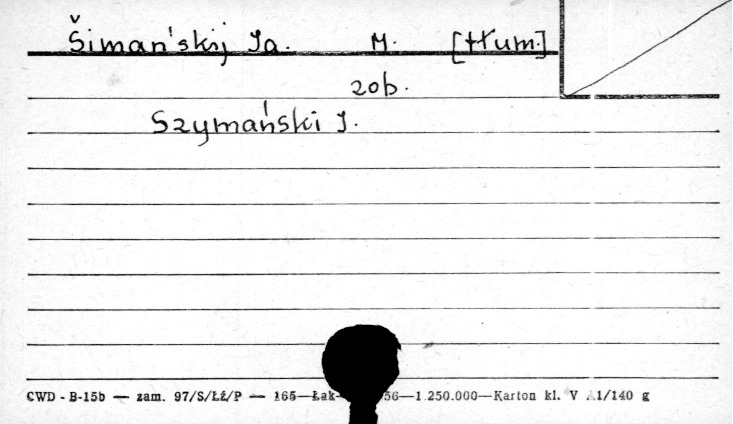 Šiman'skij Ja. M. [tłum.]
zob.
Szymański J.
CWD - B-15b — zam. 97/S/Łź/P — 165—Łak- 56—1.250.000—Karton kl. V A1/140 g